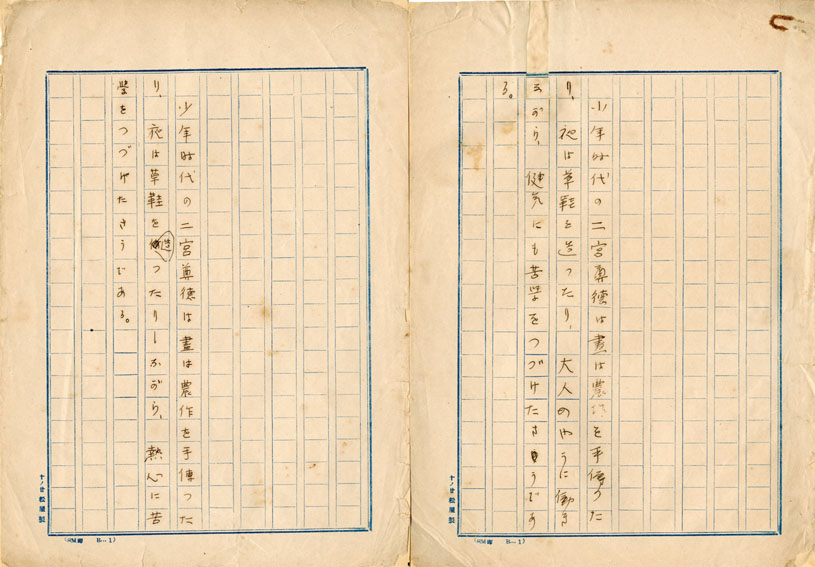 少年時代の二宮尊徳は晝は農作を手傳つた
り、夜は草鞋を造つたり、大人のやうに働き
ながら、健気にも苦学をつづけたさうであ
る。
少年時代の二宮尊徳は晝は農作を手傳つた
り、夜は草鞋を造つたりしながら、熱心に苦
學をつづけたさうである。
十ノ廿 松屋製
十ノ廿 松屋製